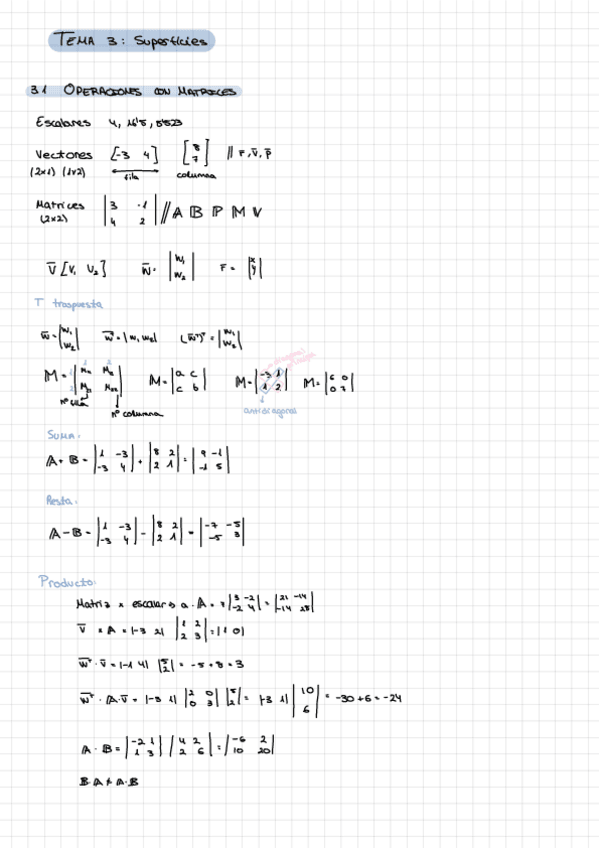 TEMA 3: Superficies
3.1 OPERACIONES CON MATRICES
Escalares 4, 16'5, 5'523
Vectores [-3 4] [8 7] // F, V̅, P̅
(2x1) (1x2) fila columna
Matrices |3 -1; 4 2| // A B P M V
(2x2)
V̅ [V₁ V₂] W̅ = |W₁; W₂| F = |x; y|
T traspuesta
W̅ = |W₁; W₂| W̅ᵀ = |W₁ W₂| (W̅ᵀ)ᵀ = |W₁; W₂|
diagonal principal
M = |M₁₁ M₁₂; M₂₁ M₂₂| M = |a c; c b| M = |-3 1; 1 2| M = |6 0; 0 7|
nº fila nº columna antidiagonal
SUMA:
A + B = |1 -3; -3 4| + |8 2; 2 1| = |9 -1; -1 5|
Resta:
A - B = |1 -3; -3 4| - |8 2; 2 1| = |-7 -5; -5 3|
Producto:
Matriz x escalar → a · A = 7 |3 -2; -2 4| = |21 -14; -14 28|
V̅ x A = |-3 2| |1 2; 2 3| = |1 0|
W̅ᵀ · V̅ = |-1 4| |5; 2| = -5 + 8 = 3
W̅ᵀ · A · V̅ = |-3 1| |2 0; 0 3| |5; 2| = |-3 1| |10; 6| = -30 + 6 = -24
A · B = |-2 1; 1 3| |4 2; 2 6| = |-6 2; 10 20|
B · A ≠ A · B